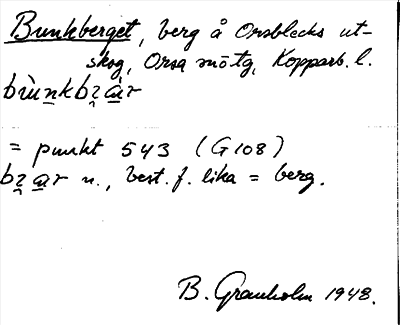 Bunkberget, berg å Orsblecks ut-
skog, Orsa snötg, Kopparb. l.
= punkt 543 (G 108)
n., best. f. lika = berg.
B. Granholm 1948.